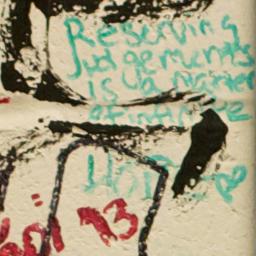 Reserving
Judgements
is a matter
of infinite
Hope